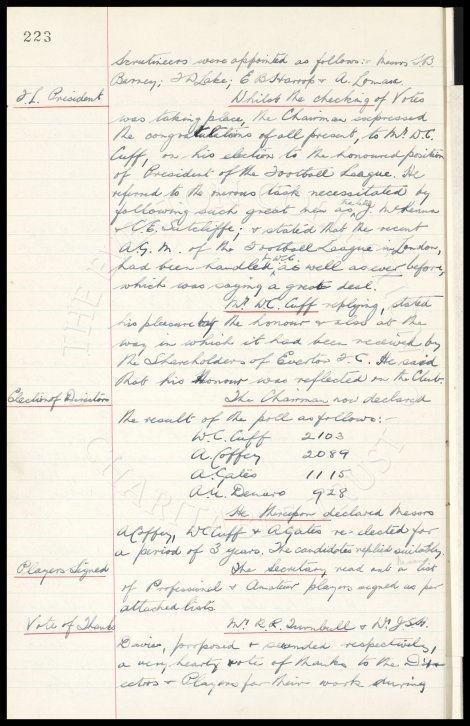 223
Scrutineers were appointed as follows:- Messrs
Berney; Lake; E B Harrop & A. Lomax.
F.L. President
Whilst the checking of Votes
was taking place, the Chairman expressed
the congratulations of all present, to Mr W.C.
Cuff, on his election to the honoured position
of President of the Football League. He
referred to the task necessitated by
following such great men as the late J. McKenna
& C.E. Sutcliffe; & stated that the recent
A.G.M. of the Football League in London,
had been handled, by WCC as well as ever before,
which was saying a great deal.
Mr W.C. Cuff replying, stated
his pleasure the honour & also at the
way in which it had been received by
the Shareholders of Everton F.C. He said
that his Honour was reflected on the Club.
Election of Directors
The Chairman now declared
the result of the poll as follows:-
W.C. Cuff 2103
A. Coffey 2089
A. Gates 1115
Denaro 928
He thereupon declared Messrs
A Coffey, W C Cuff & A Gates re-elected for
a period of 3 years. The candidates replied suitably.
Players Signed
The Secretary read out a list
of Professional & Amateur players signed as per
attached lists
Vote of Thanks
Mr R.R. Turnbull & Mr
Davies, proposed & seconded respectively,
a very hearty vote of thanks to the Dir-
ectors & Players for their work during